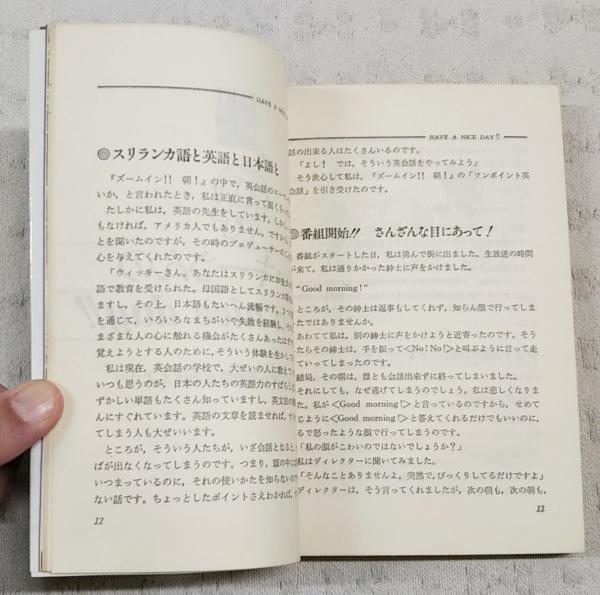 HAVE A NICE
◎スリランカ語と英語と日本語と
『ズームイン!! 朝!』の中で、英会話のコーナー
いか、と言われたとき、私は正直に言って面くらった
たしかに私は、英語の先生をしています。しかし
もなければ、アメリカ人でもありません。ですから
とを聞いたのですが、その時のプロデューサーのこ
心を与えてくれたのです。
「ウィッキーさん。あなたはスリランカにお生まれ
語で教育を受けられた。母国語としてスリランカ語
ますし、その上、日本語もたいへん流暢です。
を通じて、いろいろなまちがいや失敗を経験し、
まざまな人の心に触れる機会がたくさんあったはず
覚えようとする人のために、そういう体験を生かして
私は現在、英会話の学校で、大ぜいの人に教えて
いつも思うのが、日本の人たちの英語力のすばらし
ずかしい単語もたくさん知っていますし、英文の
んにすぐれています。英語の文章を読ませれば、す
てしまう人も大ぜいいます。
ところが、そういう人たちが、いざ会話となると
ばが出なくなってしまうのです。つまり、頭の中に
いつまっているのに、それの使いかたを知らないので
ない話です。ちょっとしたポイントさえわかれば、
12
HAVE A NICE DAY!!
話の出来る人はたくさんいるのです。
「よし! では、そういう英会話をやってみよう」
そう決心して私は、『ズームイン!! 朝!』の「ワンポイント英
会話」を引き受けたのです。
◎番組開始!! さんざんな目にあって!
番組がスタートした日、私は勇んで街に出ました。生放送の時間
が来て、私は通りかかった紳士に声をかけました。
"Good morning!"
ところが、その紳士は返事もしてくれず、知らん顔で行ってしま
ったではありませんか。
あわてて私は、別の紳士に声をかけようと近寄ったのです。そう
したらその紳士は、手を振って<No! No!>と叫ぶように言って走
っていってしまったのです。
結局、その朝は、誰とも会話出来ずに終ってしまいました。
それにしても、なぜ逃げてしまうのでしょう。私は悲しくなりま
した。私が<Good morning!>と言っているのですから、せめて
じように<Good morning!>と答えてくれるだけでもいいのに、
るで怒ったような顔で行ってしまうのです。
「私の顔がこわいのではないでしょうか?」
私はディレクターに聞いてみました。
「そんなことありませんよ。突然で、びっくりしてるだけですよ」
ディレクターは、そう言ってくれましたが、次の朝も、次の朝も、
13